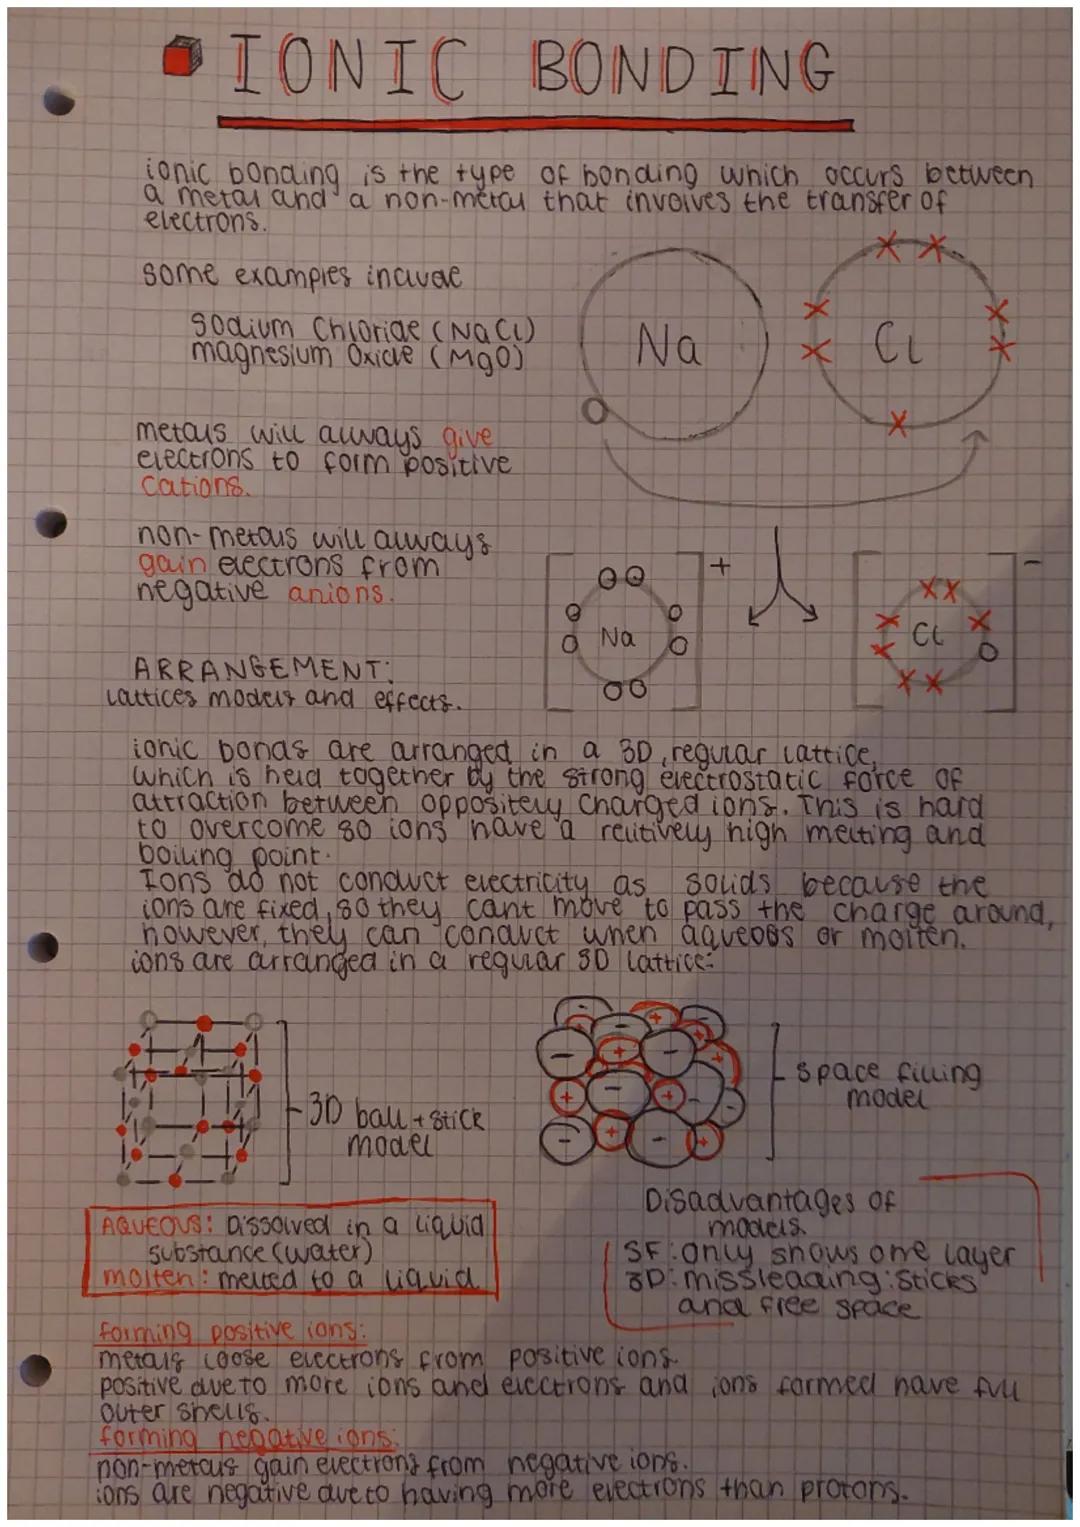 IONIC BONDING
ionic bonding is the type of bonding which occurs between
a metal and a non-metal that involves the transfer of
electrons.
some examples include
Sodium Chloride (NaCl)
magnesium Oxide (MgO)
Na
Cl
metals will always give
electrons to form positive
cations.
non-metals will always
gain electrons from
negative anions.
+
-
Na
Cl
ARRANGEMENT:
Lattices models and effects.
ionic bonds are arranged in a 3D, regular lattice,
which is held together by the strong electrostatic force of
attraction between oppositely charged ions. This is hard
to overcome so ions have a relitively high melting and
boiling point.
Ions do not conduct electricity as solids because the
ions are fixed, so they cant move to pass the charge around,
however, they can conduct when aqueous or molten.
ions are arranged in a regular 3D lattice:
3D ball + stick
model
space filling
model
AQUEOUS: Dissolved in a liquid
substance (water)
molten: melted to a liquid
Disadvantages of
models
SF: only shows one layer
3D: missleading: sticks
and free space
forming positive ions:
metals loose electrons from positive ions.
positive due to more ions and electrons and ions formed have full
outer shells.
forming negative ions:
non-metals gain electrons from negative ions.
ions are negative due to having more electrons than protons.